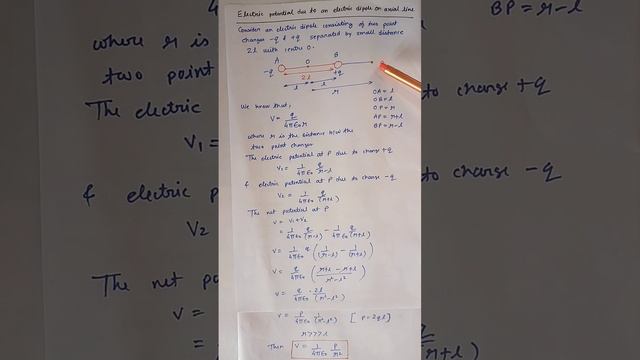 Electric potential due to an electric dipole on axial line
Consider an electric dipole consisting of two point
charges -q & +q separated by small distance
2l with centre O.
A O B
-q 2l +q
l l
r
OA = l
OB = l
OP = r
AP = r+l
BP = r-l
We know that,
V = q/4πε₀r
where r is the distance b/w the
two point charges
The electric potential at P due to charge +q
V₁ = 1/4πε₀ q/r-l
& electric potential at P due to charge -q
V₂ = 1/4πε₀ q/(r+l)
The net potential at P
V = V₁+V₂
= 1/4πε₀ q/(r-l) - 1/4πε₀ q/(r+l)
V = 1/4πε₀ q (1/(r-l) - 1/(r+l))
V = q/4πε₀ (r+l-r+l/r²-l²)
V = q/4πε₀ · 2l/(r²-l²)
V = P/4πε₀ 1/(r²-l²) [P=2ql]
r>>>l
Then V = 1/4πε₀ P/r²
BP = r-l
where r
two point
The electric
V₁ =
& electric p
V₂
The net po
V =
=
to charge +q
to charge -q
q/(r+l)